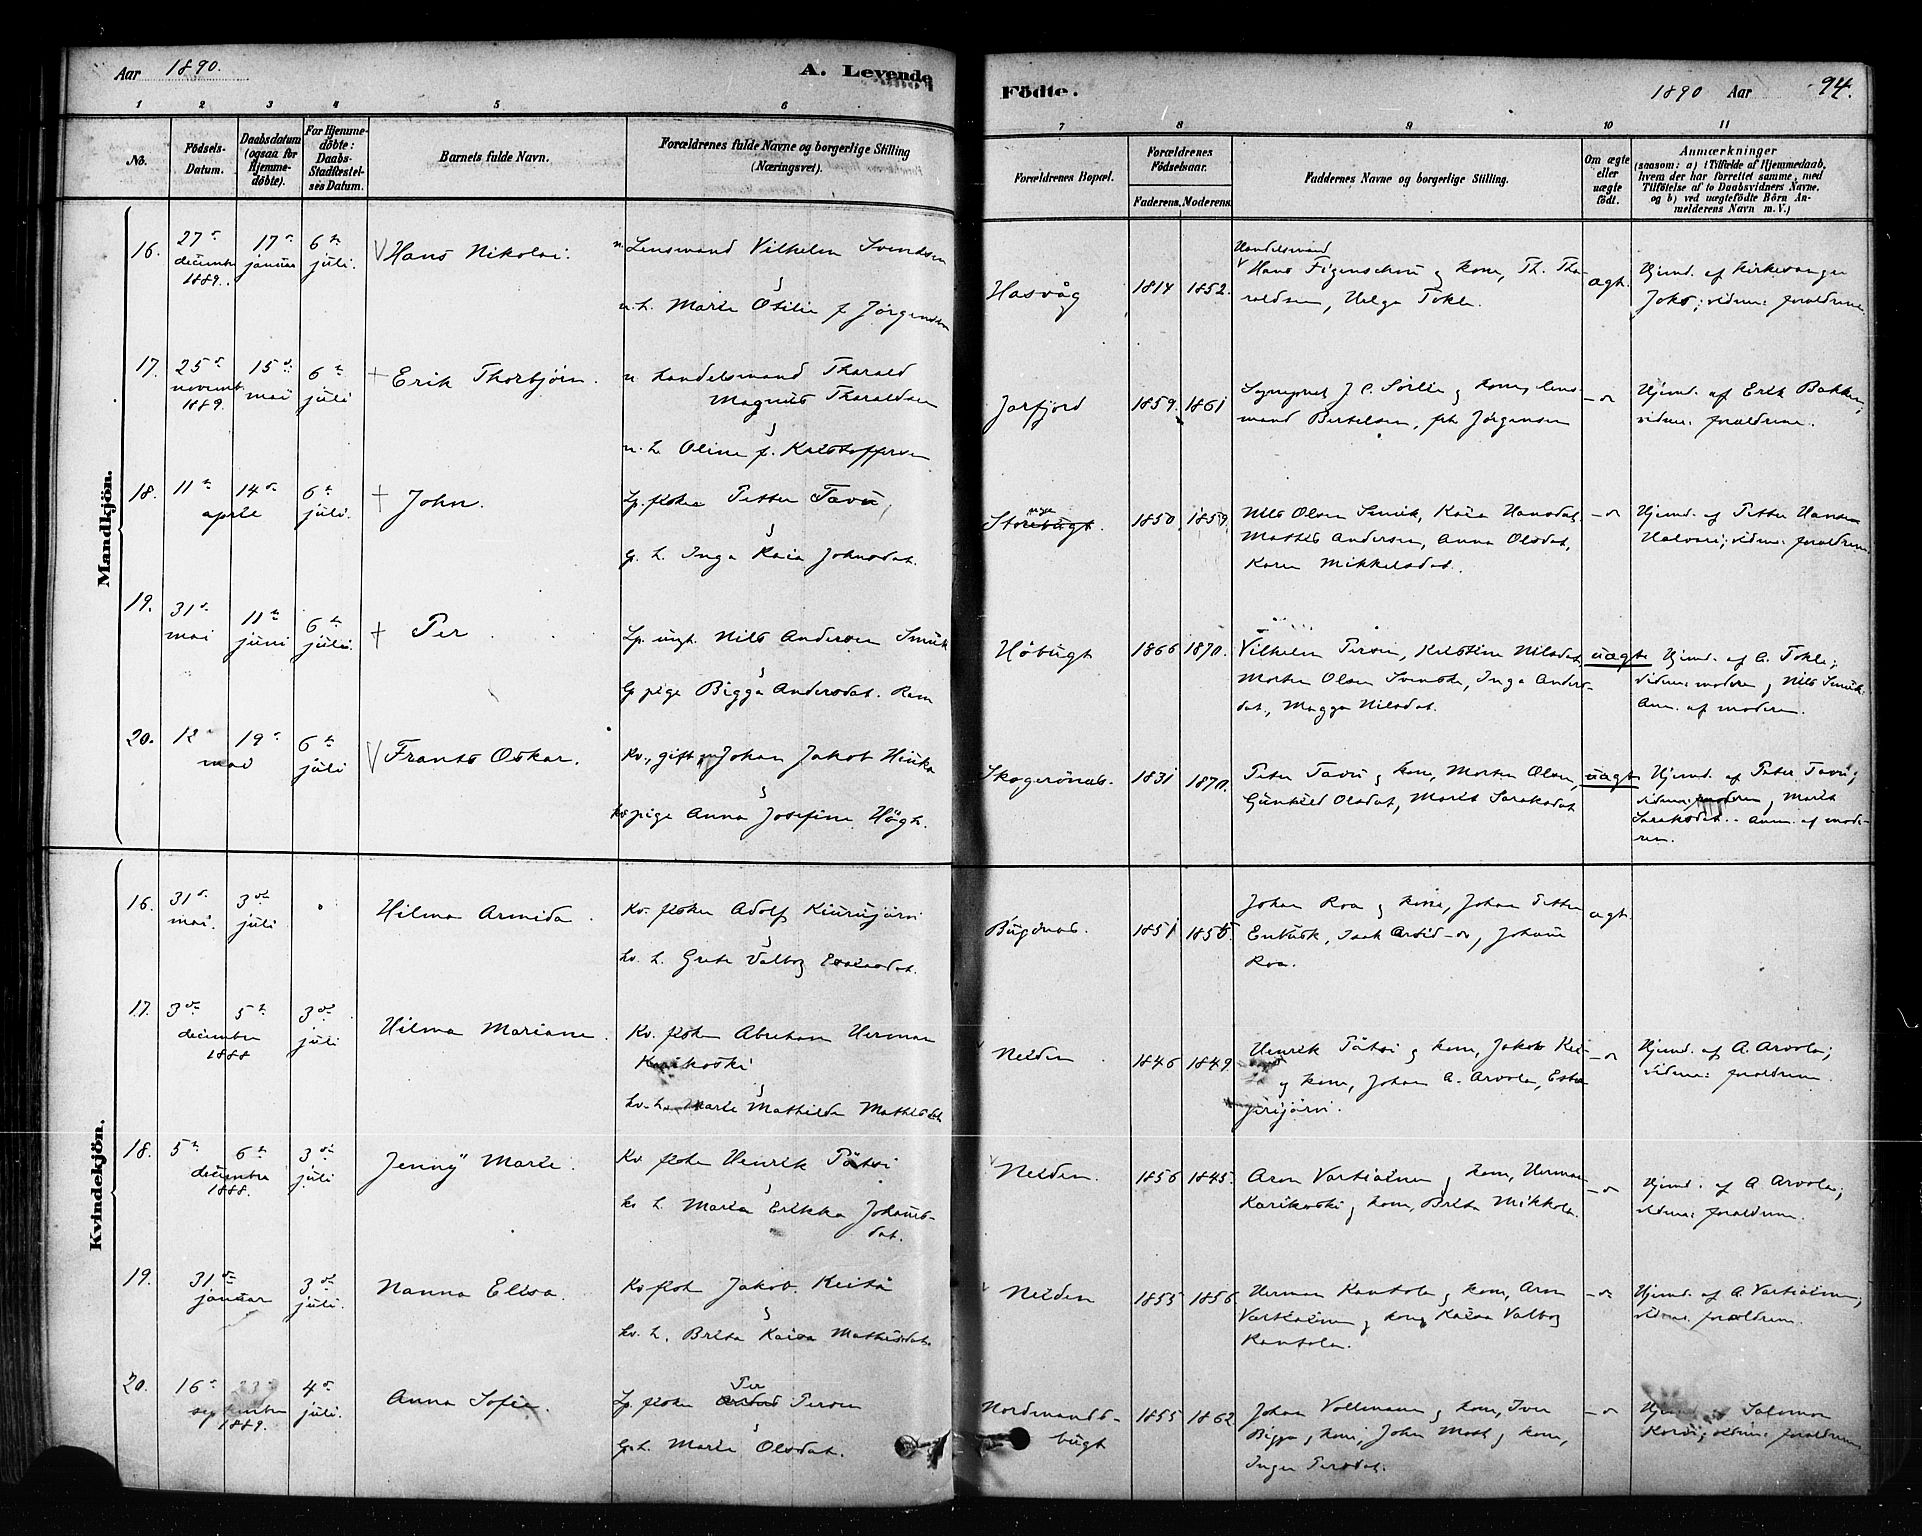 Aar 1890. A. Levende
1 2 3 4 5 6
No. Födsels-Datum. Daabsdatum (ogsaa for Hjemmedöbte). For Hjemmedöbte: Daabs-Stadfæstelses Datum. Barnets fulde Navn. Forældrenes fulde Navne og borgerlige Stilling (Næringsvei).
Mandkjön.
16. 27de december 1889. 17de januar 6te juli. Hans Nikolai. n. Lensmand Vilhelm Svendsen
n. h. Marie Otilie f. Jørgensen
17. 25de novemb. 1889. 15de mai 6te juli Erik Thorbjörn. n handelsmand Tharald
Magnus Tharaldsen
n. h. Oline f. Kristoffersen
18. 11te 14de april 6te juli. John. Lp. fisker Petter Tavu,
G. h. Inga Kaia Johnsdat.
19. 31de mai 11te juni 6te juli. Per Lp. ungk. Nils Andersen Smuk
Lp pige Bigga Andersdat. Ram
20. 12te 19de mai 6te juli Frants Oskar. Kv., gift, Johan Jakob Heika
kv pige Anna Josefine Högh.
Kvindekjön.
16. 31de mai. 3die juli Hilma Armida. Kv. fisker Adolf Kiurujärvi
kv. h. Grete Valborg Esaiasdat.
17. 3die 5te december 1888 3die juli Hilma Mariane. Kv. fisker Abraham Herman
Karikoski
kv. h. Marie Mathilde Mathisdat
18. 5te 6te december 1888. 3die juli Jenny Marie. Kv fisker Henrik Pätsi
kv h. Maria Erikka Johansdat.
19. 31de januar 3die juli. Nanna Elisa. Kv fisk. Jakob Keitä
kv. h. Brita Kaisa Mathisdat.
20. 16de september 1889. 4de juli. Anna Sofie. Lp. fisker Per Persen
Lp. h. Marie Olsdat.
Födte. 1890 Aar 94.
7 8 9 10 11
Forældrenes Bopæl. Forældrenes Födselsaar. Faderens. Moderens. Faddernes Navne og borgerlige Stilling. Om ægte eller uægte födt. Anmærkninger (saasom: a) i Tilfælde af Hjemmedaab, hvem der har forrettet samme, med Tilföielse af to Daabsvidners Navne, og b) ved uægtefödte Börn Anmelderens Navn m. V.)
Handelsmand
Hasvåg 1814 1852. Hans Figenschou og kone, Th. Tharaldsen, Helga Tokle. ægt. Hjemd. af kirkesanger
Joks; vidner: forældrene.
Jarfjord 1859. 1861 J. C. Sörlie og kone, lensmand Bertelsen, frk Jörgensen -o- Hjemd. af Erik Bakken,
vidner: forældrene.
Storebugt. 1850. 1859. Nils Olsen Smuk, Kaia Hansdat,
Mathis Andersen, Anna Olsdat,
Karen Mikkelsdat. -o- Hjemd. af Petter Hansen
Halvari; vidner: forældrene
Höbugt 1866 1870. Vilhelm Persen, Kristine Nilsdat,
Morten Olsen Svenske, Inga Andersdat., Magga Nilsdat. uægt Hjemd. af C. Tokle;
vidner: moderen og Nils Smuk.
Anm. af moderen.
Skogerönes. 1831 1870. Peter Tavu og kone, Morten Olsen,
Gunhild Olsdat, Marit Saraksdat uægt Hjemd. af Peter Tavu;
vidner: moderen og Marit
Saraksdat. - Anm. af moderen.
Bugönes. 1851 1855. Johan Roa og kone, Johan Petter
Enbusk, Isak Arsid -o-, Johan
Roa. ægt.
Neiden 1846 1849. Henrik Pätsi og kone, Jakob Keitä
og kone, Johan A. Arvola, -o- Hjemd. af A. Arvola;
vidner: forældrene.
Neiden. 1856 1845. Aron Vartiainen og kone, Herman
Karikoski og kone, Brita Mikkola. -o- Hjemd. af A. Arvola;
vidner: forældrene.
Neiden 1855 1856 Herman Kantola og kone, Aron
Vartiainen og kone, Kaisa Valborg
Kantola. -o- Hjemd. af A. Vartiainen,
vidner: forældrene.
Nordmandsbugt 1855 1862 Johan Vollmann og kone, Iver
Bigga og kone, John Most og kone,
Inger Persdat. -o- Salomon
vidner: forældrene